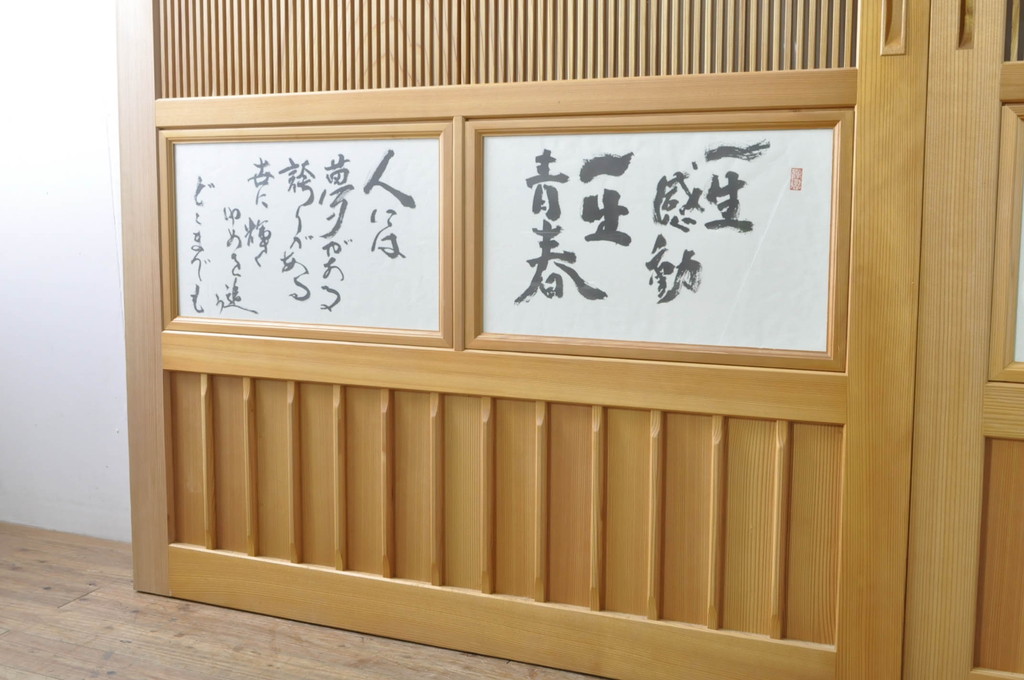 一生
感動
一生
青春
人には
夢がある
誇りがある
世に輝く
ゆめを追う
どこまでも